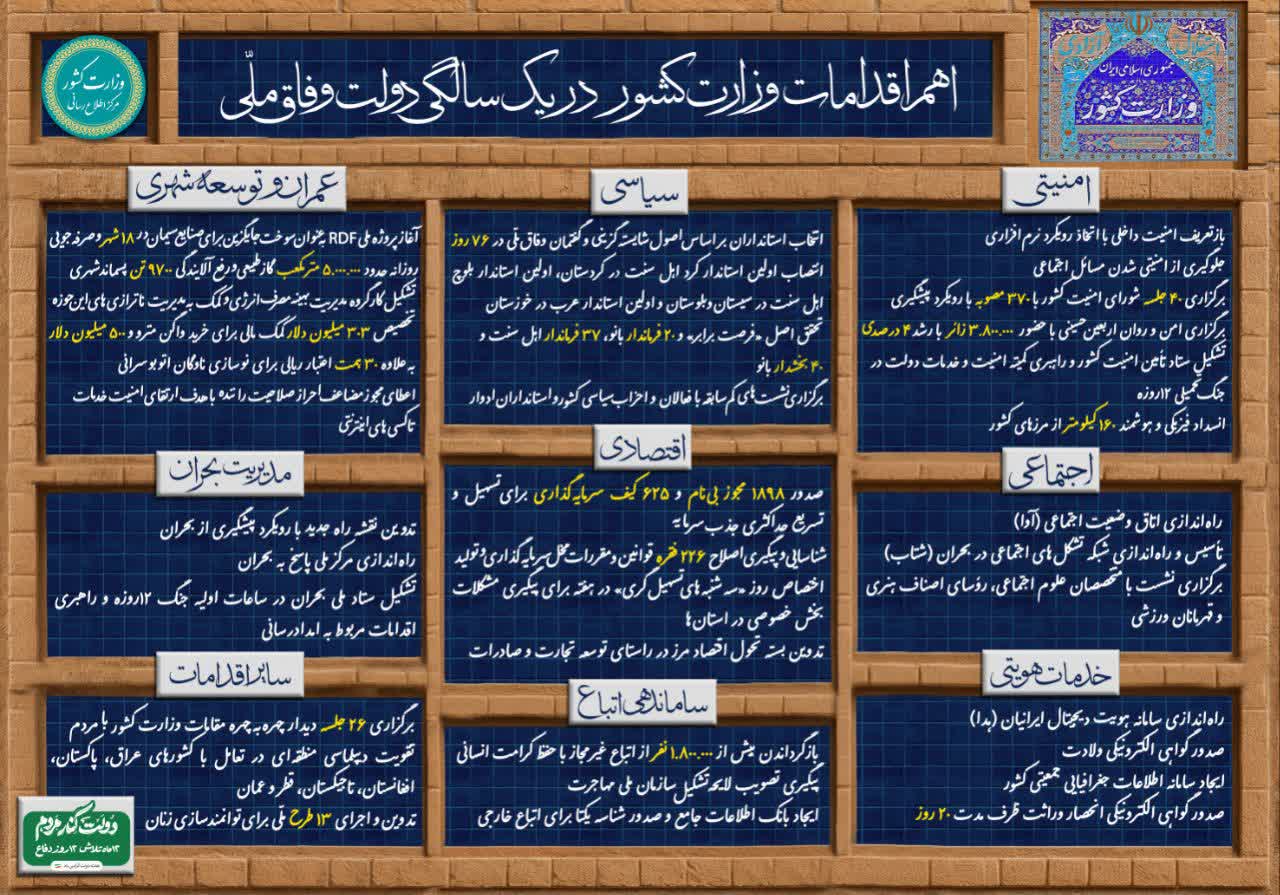 استقلال آزادی
جمهوری اسلامی ایران
وزارت کشور
اهم اقدامات وزارت کشور در یک سالگی دولت وفاق ملّی
وزارت کشور
مرکز اطلاع رسانی
امنیتی
بازتعریف امنیت داخلی با اتخاذ رویکرد نرم افزاری
جلوگیری از امنیتی شدن مسائل اجتماعی
برگزاری ۴۰ جلسه شورای امنیت کشور با ۳۷۰ مصوبه با رویکرد پیشگیری
برگزاری امن و روان اربعین حسینی با حضور ۳.۸۰۰.۰۰۰ زائر با رشد ۴ درصدی
تشکیل ستاد تأمین امنیت کشور و راهبری کمیته امنیت و خدمات دولت در
جنگ تحمیلی ۱۲روزه
انسداد فیزیکی و هوشمند ۱۶۰ کیلومتر از مرزهای کشور
اجتماعی
راه اندازی اتاق وضعیت اجتماعی (آوا)
تأسیس و راه‌اندازی شبکه تشکل های اجتماعی در بحران (شتاب)
برگزاری نشست با متخصصان علوم اجتماعی، رؤسای اصناف هنری
و قهرمانان ورزشی
خدمات هویتی
راه اندازی سامانه هویت دیجیتال ایرانیان (هدا)
صدور گواهی الکترونیکی ولادت
ایجاد سامانه اطلاعات جغرافیایی جمعیتی کشور
صدور گواهی الکترونیکی انحصار وراثت ظرف مدت ۲۰ روز
سیاسی
انتخاب استانداران بر اساس اصول شایسته گزینی و گفتمان وفاق ملی در ۷۶ روز
انتصاب اولین استاندار کرد اهل سنت در کردستان، اولین استاندار بلوچ
اهل سنت در سیستان وبلوستان و اولین استاندار عرب در خوزستان
تحقق اصل «فرصت برابر» و ۲۰ فرماندار بانو، ۳۷ فرماندار اهل سنت و
۴۰ بخشدار بانو
برگزاری نشست های کم سابقه با فعالان و احزاب سیاسی کشور و استانداران ادوار
اقتصادی
صدور ۱۸۹۸ مجوز بی نام و ۶۲۵ کیف سرمایه گذاری برای تسهیل و
تسریع حداکثری جذب سرمایه
شناسایی و پیگیری اصلاح ۲۲۶ فقره قوانین و مقررات مخل سرمایه گذاری و تولید
اختصاص روز «سه شنبه های تسهیل گری» در هفته برای پیگیری مشکلات
بخش خصوصی در استان ها
تدوین بسته تحول اقتصاد مرز در راستای توسعه تجارت و صادرات
ساماندهی اتباع
بازگرداندن بیش از ۱.۸۰۰.۰۰۰ نفر از اتباع غیرمجاز با حفظ کرامت انسانی
پیگیری تصویب لایحه تشکیل سازمان ملی مهاجرت
ایجاد بانک اطلاعات جامع و صدور شناسه یکتا برای اتباع خارجی
عمران و توسعه شهری
آغاز پروژه ملی RDF به عنوان سوخت جایگزین برای صنایع سیمان در ۱۸ شهر و صرفه جویی
روزانه حدود ۵.۰۰۰.۰۰۰ مترمکعب گاز طبیعی و رفع آلایندگی ۹۷۰۰ تن پسماند شهری
تشکیل کارگروه مدیریت بهینه مصرف انرژی و کمک به مدیریت ناترازی های این حوزه
تخصیص ۳۰۳ میلیون دلار کمک مالی برای خرید واگن مترو و ۵۰۰ میلیون دلار
به علاوه ۳۰ همت اعتبار ریالی برای نوسازی ناوگان اتوبوسرانی
اعطای مجوز مضاعف احراز صلاحیت راننده با هدف ارتقای امنیت خدمات
تاکسی های اینترنتی
مدیریت بحران
تدوین نقشه راه جدید با رویکرد پیشگیری از بحران
راه اندازی مرکز ملی پاسخ به بحران
تشکیل ستاد ملی بحران در ساعات اولیه جنگ ۱۲روزه و راهبری
اقدامات مربوط به امدادرسانی
سایر اقدامات
برگزاری ۲۶ جلسه دیدار چهره به چهره مقامات وزارت کشور با مردم
تقویت دیپلماسی منطقه ای در تعامل با کشورهای عراق، پاکستان،
افغانستان، تاجیکستان، قطر و عمان
تدوین و اجرای ۱۳ طرح ملی برای توانمندسازی زنان
دولت کنار مردم
۱۲ماه تلاش ۱۲روز دفاع